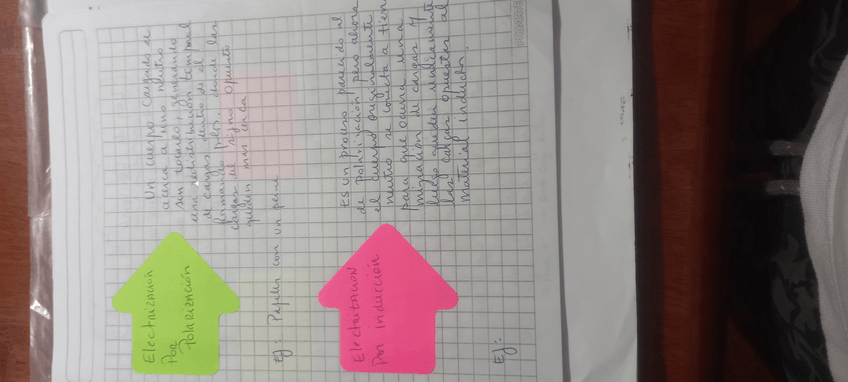 Electrización
Por
Polarización
Un cuerpo cargado se
acerca a uno neutro
sin tocarlo, generando
una redistribución temporal
de cargas dentro de el
formando polos, donde las
cargas de signo opuesto
queden mas cerca
Ej: Papeles con un peine
Electrización
Por inducción
Es un proceso parecido al
de Polarización pero ahora
el cuerpo originalmente
neutro se conecta a tierra
para que ocurra una
migración de cargas y
luego queden únicamente
las cargas opuestas al
material inductor.
Ej: